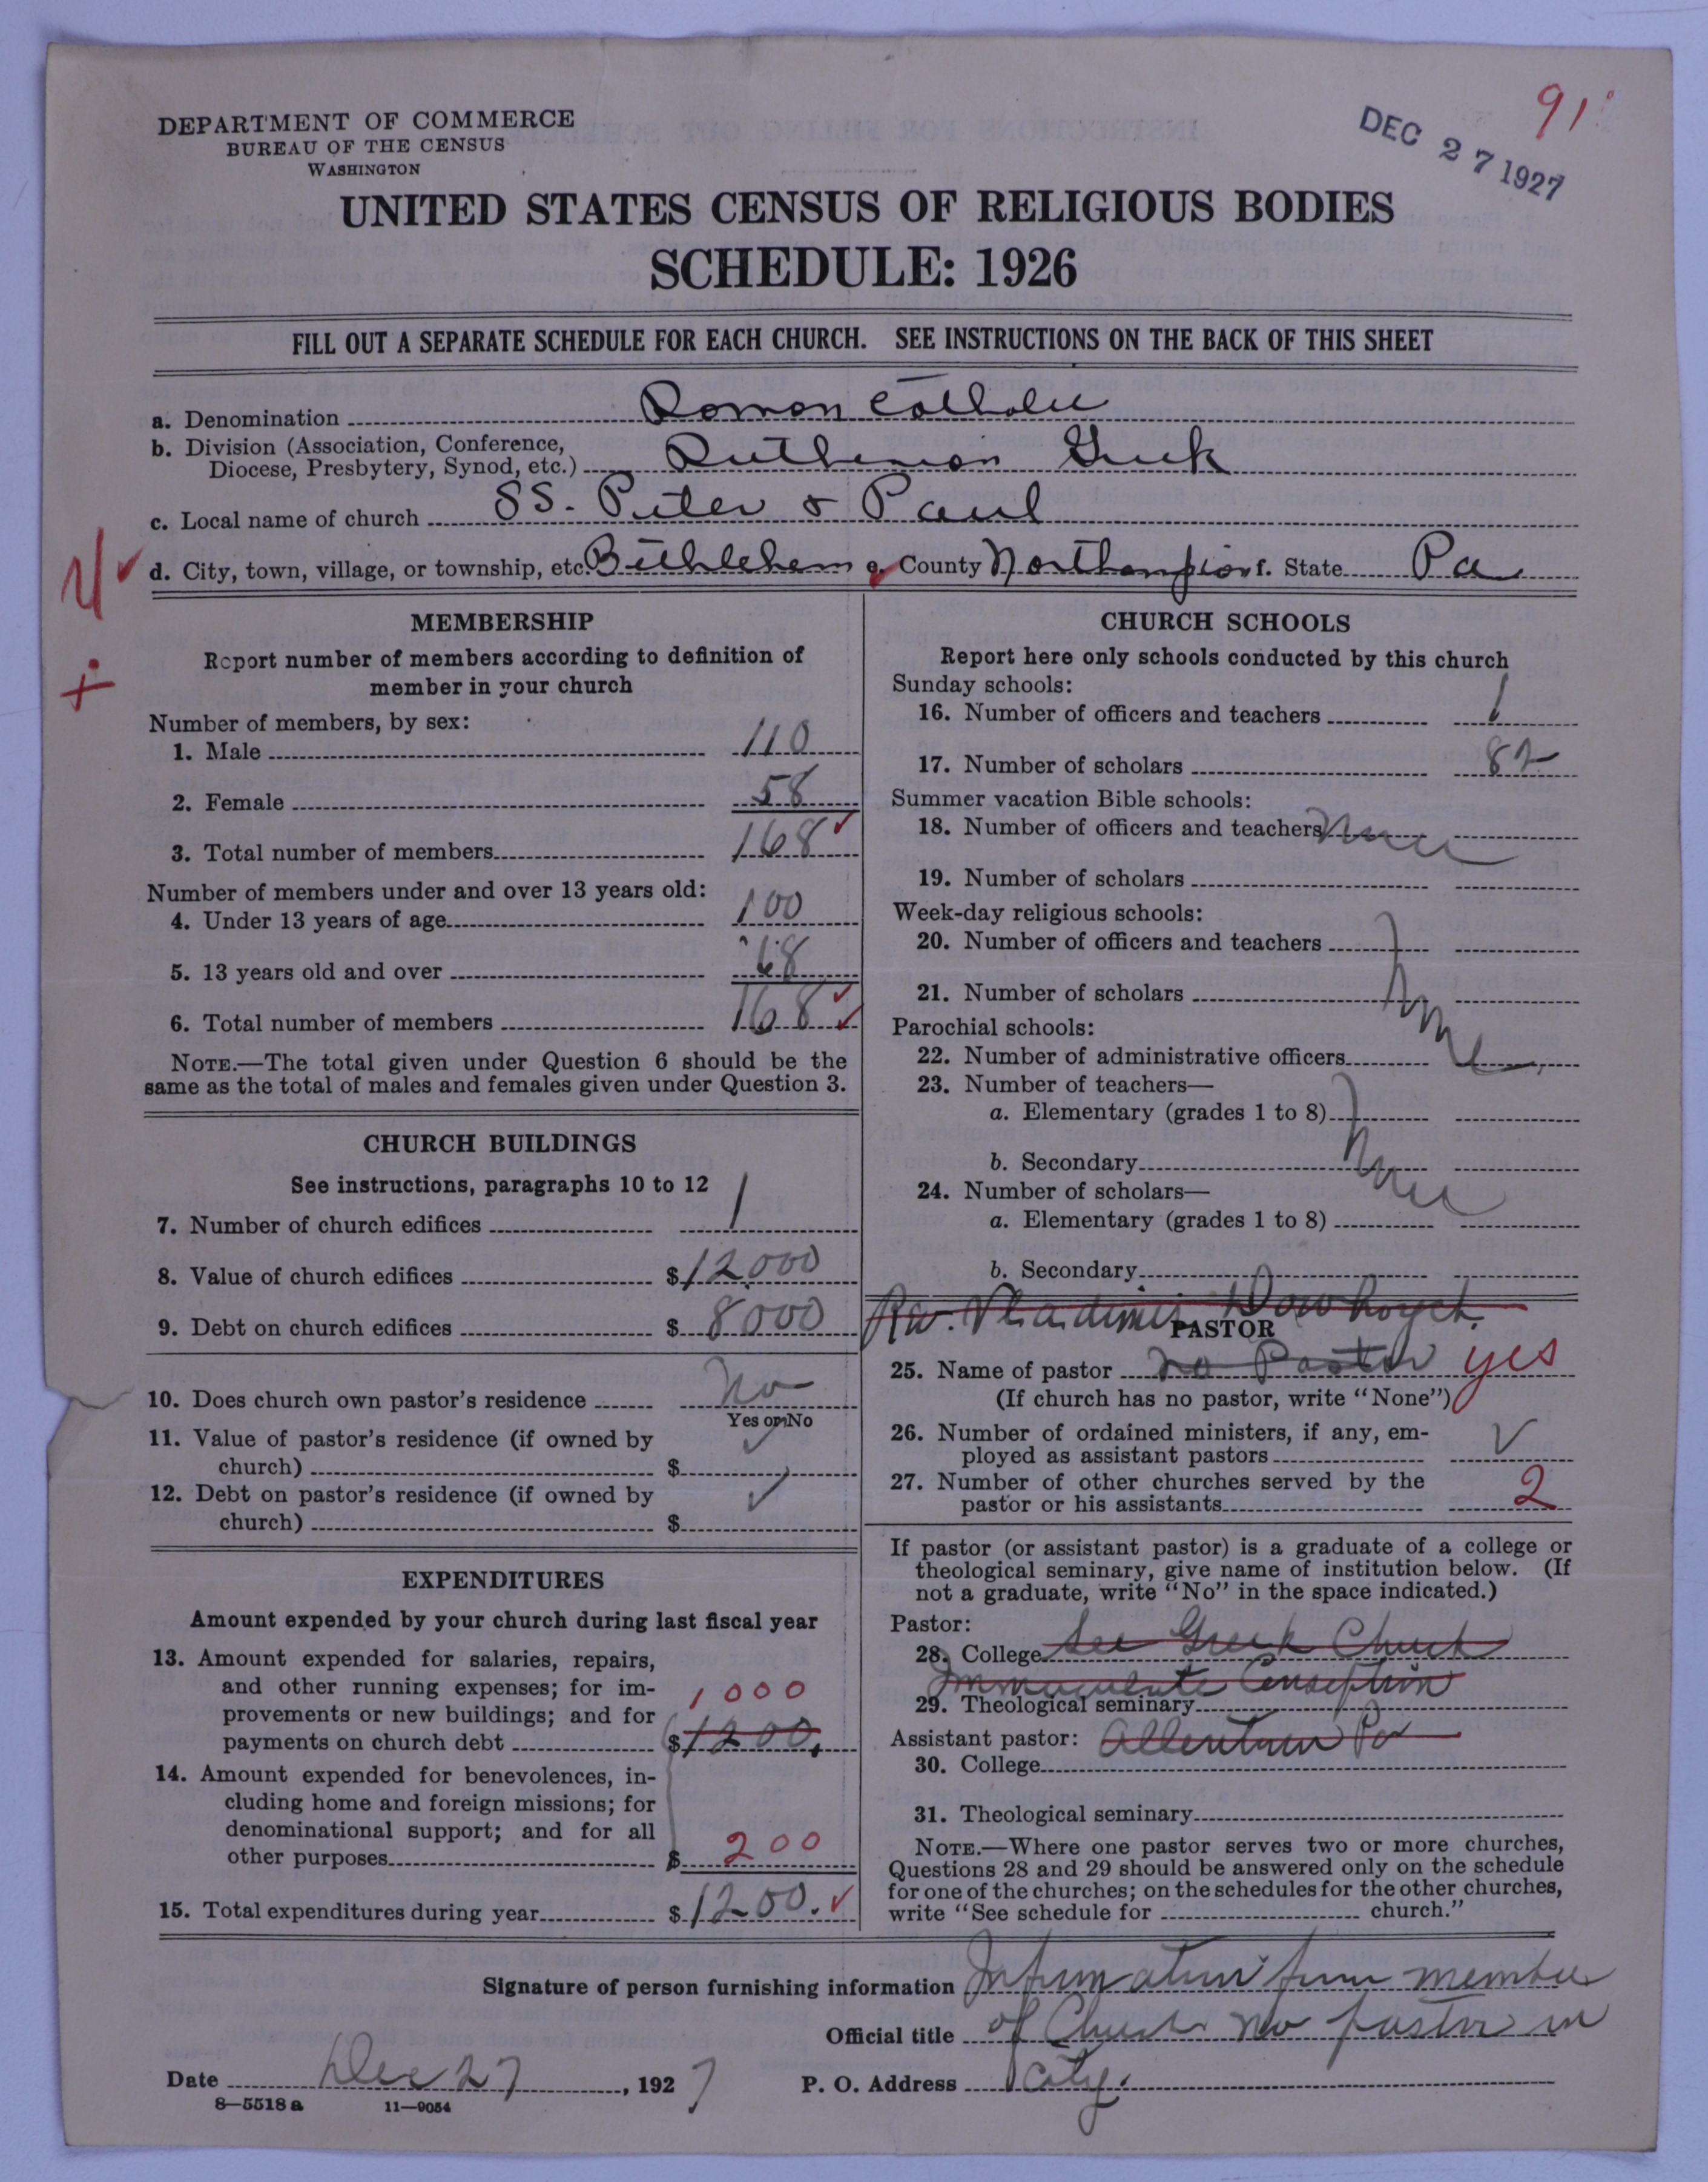 91
DEC 27 1927
DEPARTMENT OF COMMERCE
BUREAU OF THE CENSUS
WASHINGTON
UNITED STATES CENSUS OF RELIGIOUS BODIES
SCHEDULE: 1926
FILL OUT A SEPARATE SCHEDULE FOR EACH CHURCH. SEE INSTRUCTIONS ON THE BACK OF THIS SHEET
a. Denomination Roman Catholic
b. Division (Association, Conference,
Diocese, Presbytery, Synod, etc.) Ruthenian Greek
c. Local name of church SS. Peter & Paul
d. City, town, village, or township, etc. Bethlehem e. County Northampton f. State Pa
MEMBERSHIP
Report number of members according to definition of
member in your church
Number of members, by sex:
1. Male 110
2. Female 58
3. Total number of members 168 ✓
Number of members under and over 13 years old:
4. Under 13 years of age 100
5. 13 years old and over 68
6. Total number of members 168 ✓✓
NOTE.—The total given under Question 6 should be the
same as the total of males and females given under Question 3.
CHURCH BUILDINGS
See instructions, paragraphs 10 to 12
7. Number of church edifices 1
8. Value of church edifices $12000
9. Debt on church edifices $8000
10. Does church own pastor's residence No
Yes or No
11. Value of pastor's residence (if owned by
church) $ ✓
12. Debt on pastor's residence (if owned by
church) $ ✓
EXPENDITURES
Amount expended by your church during last fiscal year
13. Amount expended for salaries, repairs,
and other running expenses; for im-
provements or new buildings; and for 1000
payments on church debt $1200.
14. Amount expended for benevolences, in-
cluding home and foreign missions; for
denominational support; and for all
other purposes $ 200
15. Total expenditures during year $1200. ✓
CHURCH SCHOOLS
Report here only schools conducted by this church
Sunday schools:
16. Number of officers and teachers 1
17. Number of scholars 82
Summer vacation Bible schools:
18. Number of officers and teachers None
19. Number of scholars
Week-day religious schools:
20. Number of officers and teachers
21. Number of scholars None
Parochial schools:
22. Number of administrative officers
23. Number of teachers—
a. Elementary (grades 1 to 8)
b. Secondary None
24. Number of scholars—
a. Elementary (grades 1 to 8)
b. Secondary
Rev. Vladimir
PASTOR
25. Name of pastor No Pastor yes
(If church has no pastor, write "None")
26. Number of ordained ministers, if any, em-
ployed as assistant pastors ✓
27. Number of other churches served by the
pastor or his assistants 2
If pastor (or assistant pastor) is a graduate of a college or
theological seminary, give name of institution below. (If
not a graduate, write "No" in the space indicated.)
Pastor:
28. College See Greek Church
Immaculate Conception
29. Theological seminary
Assistant pastor: Allentown Pa
30. College
31. Theological seminary
NOTE.—Where one pastor serves two or more churches,
Questions 28 and 29 should be answered only on the schedule
for one of the churches; on the schedules for the other churches,
write "See schedule for church."
Signature of person furnishing information Information from member
Official title of Church no pastor in
Date Dec 27, 1927 P. O. Address City.
8—5518 a 11—9054